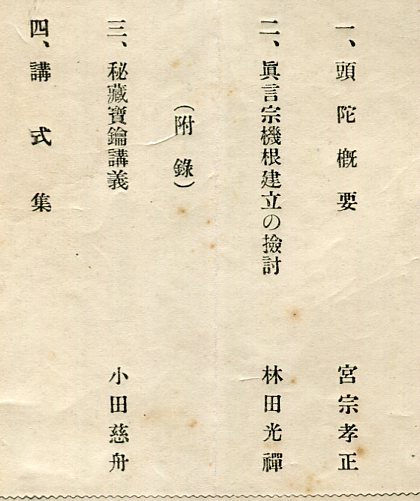 一、頭陀槪要　宮宗孝正
二、眞言宗機根建立の撿討　林田光禪
（附錄）
三、秘藏寶鑰講義　小田慈舟
四、講式集